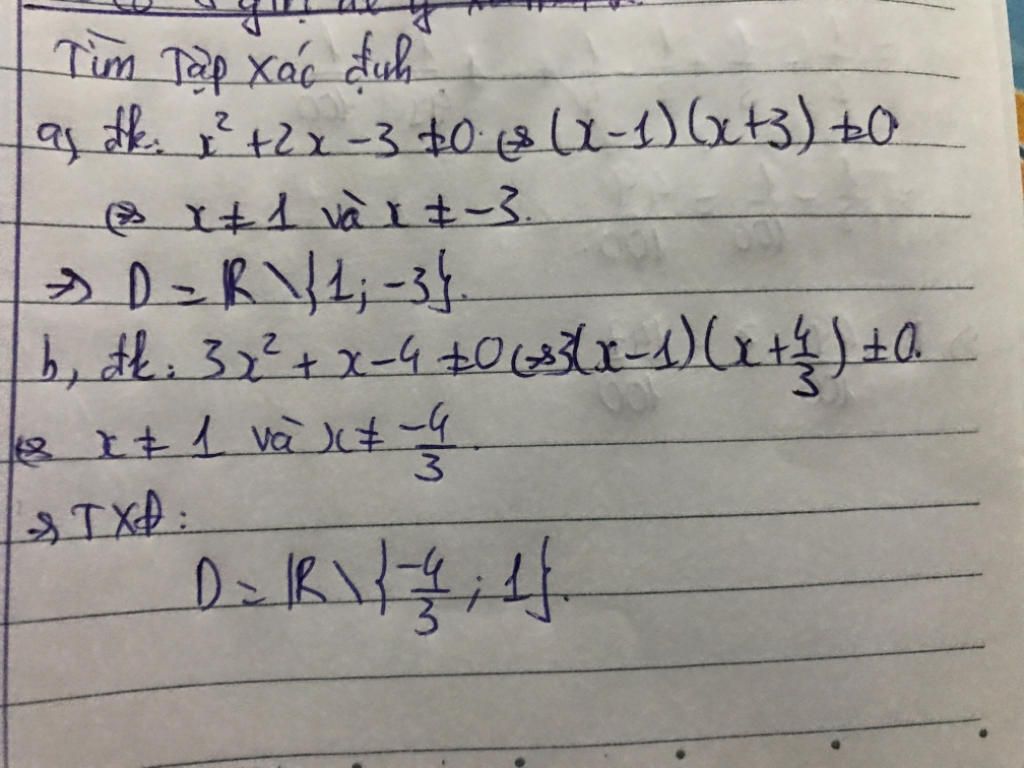 Tìm Tập xác định
a, đk: x² + 2x - 3 ≠ 0 ⇔ (x-1)(x+3) ≠ 0
⇔ x ≠ 1 và x ≠ -3.
⇒ D = ℝ \ {1; -3}.
b, đk: 3x² + x - 4 ≠ 0 ⇔ 3(x-1)(x+4/3) ≠ 0.
⇔ x ≠ 1 và x ≠ -4/3.
⇒ TXĐ:
D = ℝ \ {-4/3; 1}.